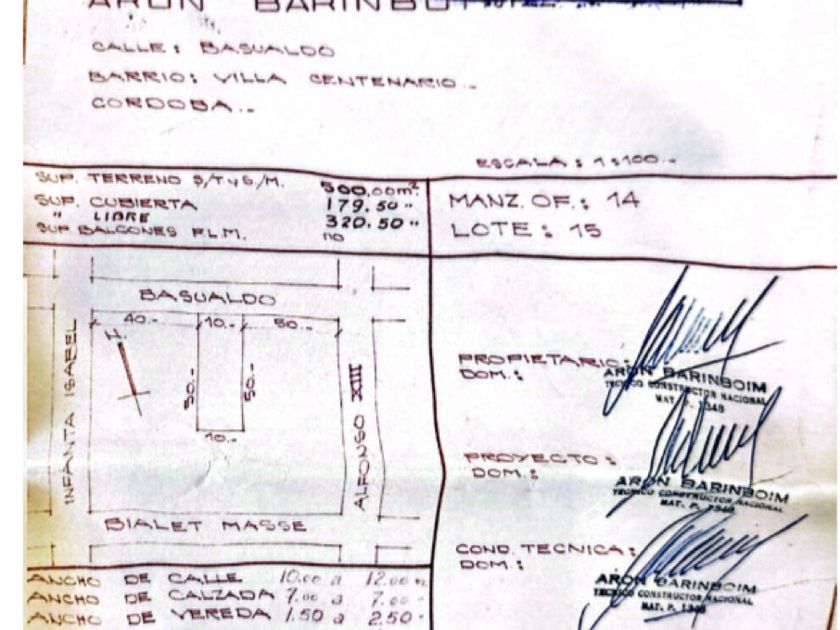 ARON BARINBOIM
CALLE: BASUALDO
BARRIO: VILLA CENTENARIO.-
CORDOBA.-
ESCALA: 1:100.-
SUP. TERRENO S/T y S/M. 500,00m²
SUP. CUBIERTA 179.50 "
" LIBRE 320.50 "
SUP BALCONES P.L.M. no
MANZ. OF.: 14
LOTE: 15
BASUALDO
40.- 10.- 50.-
H.
INFANTA ISABEL
50.- 50.-
10.-
ALFONSO XIII
BIALET MASSE
PROPIETARIO:
DOM.:
ARON BARINBOIM
TECNICO CONSTRUCTOR NACIONAL
MAT. P. 1348
PROYECTO:
DOM.:
ARON BARINBOIM
TECNICO CONSTRUCTOR NACIONAL
MAT. P. 1348
COND. TECNICA:
DOM.:
ARON BARINBOIM
TECNICO CONSTRUCTOR NACIONAL
MAT. P. 1348
ANCHO DE CALLE 10.00 a 12.00
ANCHO DE CALZADA 7.00 a 7.00
ANCHO DE VEREDA 1.50 a 2.50